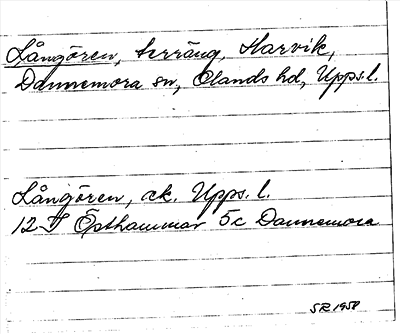 Långören, terräng, Harvik,
Dannemora sn, Olands hd, Upps.l.
Långören, ek. Upps. l.
12 I Östhammar 5c Dannemora
SR 1958